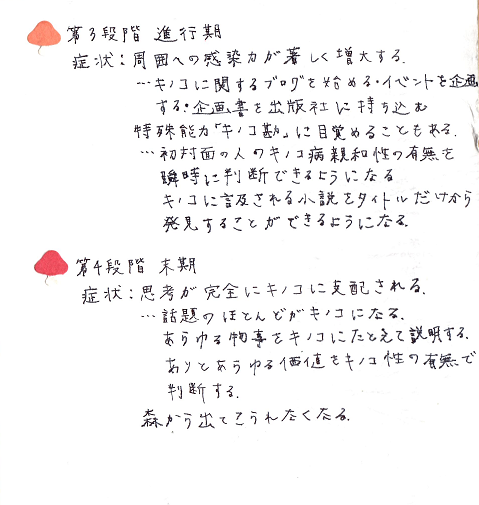 第3段階 進行期
症状:周囲への感染力が著しく増大する.
…キノコに関するブログを始める・イベントを企画
する・企画書を出版社に持ち込む
特殊能力「キノコ勘」に目覚めることもある.
…初対面の人のキノコ病親和性の有無を
瞬時に判断できるようになる
キノコに言及される小説をタイトルだけから
発見することができるようになる.
第4段階 末期
症状:思考が完全にキノコに支配される.
…話題のほとんどがキノコになる.
あらゆる物事をキノコにたとえて説明する.
ありとあらゆる価値をキノコ性の有無で
判断する.
森から出てこられなくなる.